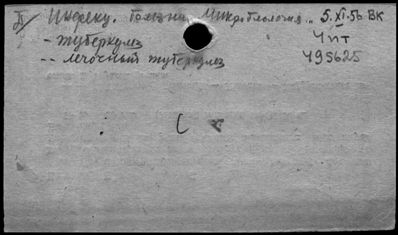 Инфекц. болезни Микробиология 5.XI.56 ВК
- туберкулез 4 пт
-- легочный туберкулез 495625